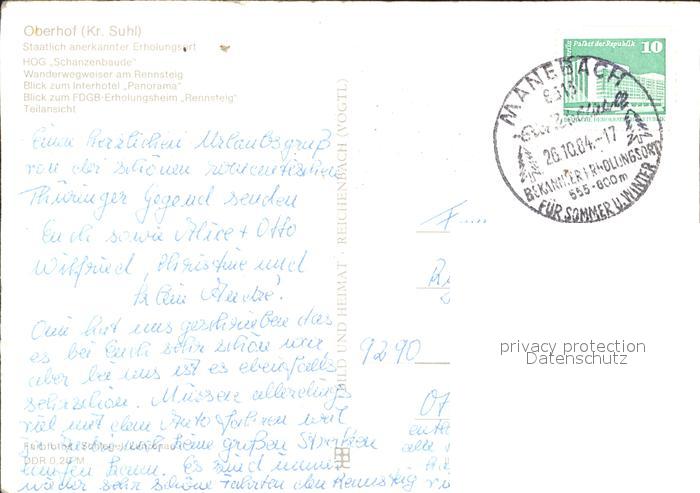 Oberhof (Kr. Suhl)
Staatlich anerkannter Erholungsort
HOG „Schanzenbaude"
Wanderwegweiser am Rennsteig
Blick zum Interhotel „Panorama"
Blick zum FDGB-Erholungsheim „Rennsteig"
Teilansicht
Einen herzlichen Urlaubsgruß
von der schönen romantischen
Thüringer Gegend senden
Euch sowie Alice + Otto
Wilfried, Christine und
klein André.
Omi hat uns geschrieben das
es bei Euch sehr schön war
aber bei uns ist es ebenfalls
sehr schön. Müssen allerdings
viel mit dem Auto fahren weil
keine großen Strecken
laufen kann. Es sind immer
wieder sehr schöne Fahrten den Rennsteig
DDR 0,20 M
BILD UND HEIMAT · REICHENBACH (VOGTL)
Palast der Republik 10
MANEBACH
26.10.84.-17
BEKANNTER ERHOLUNGSORT
555-800m
FÜR SOMMER U. WINTER
9290
privacy protection
Datenschutz